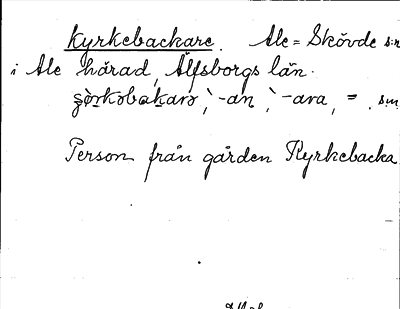 Kyrkebackare. Ale=Skövde s:n
i Ale härad, Älfsborgs län.
-an, -ara, = . sm
Person från gården Kyrkebacka